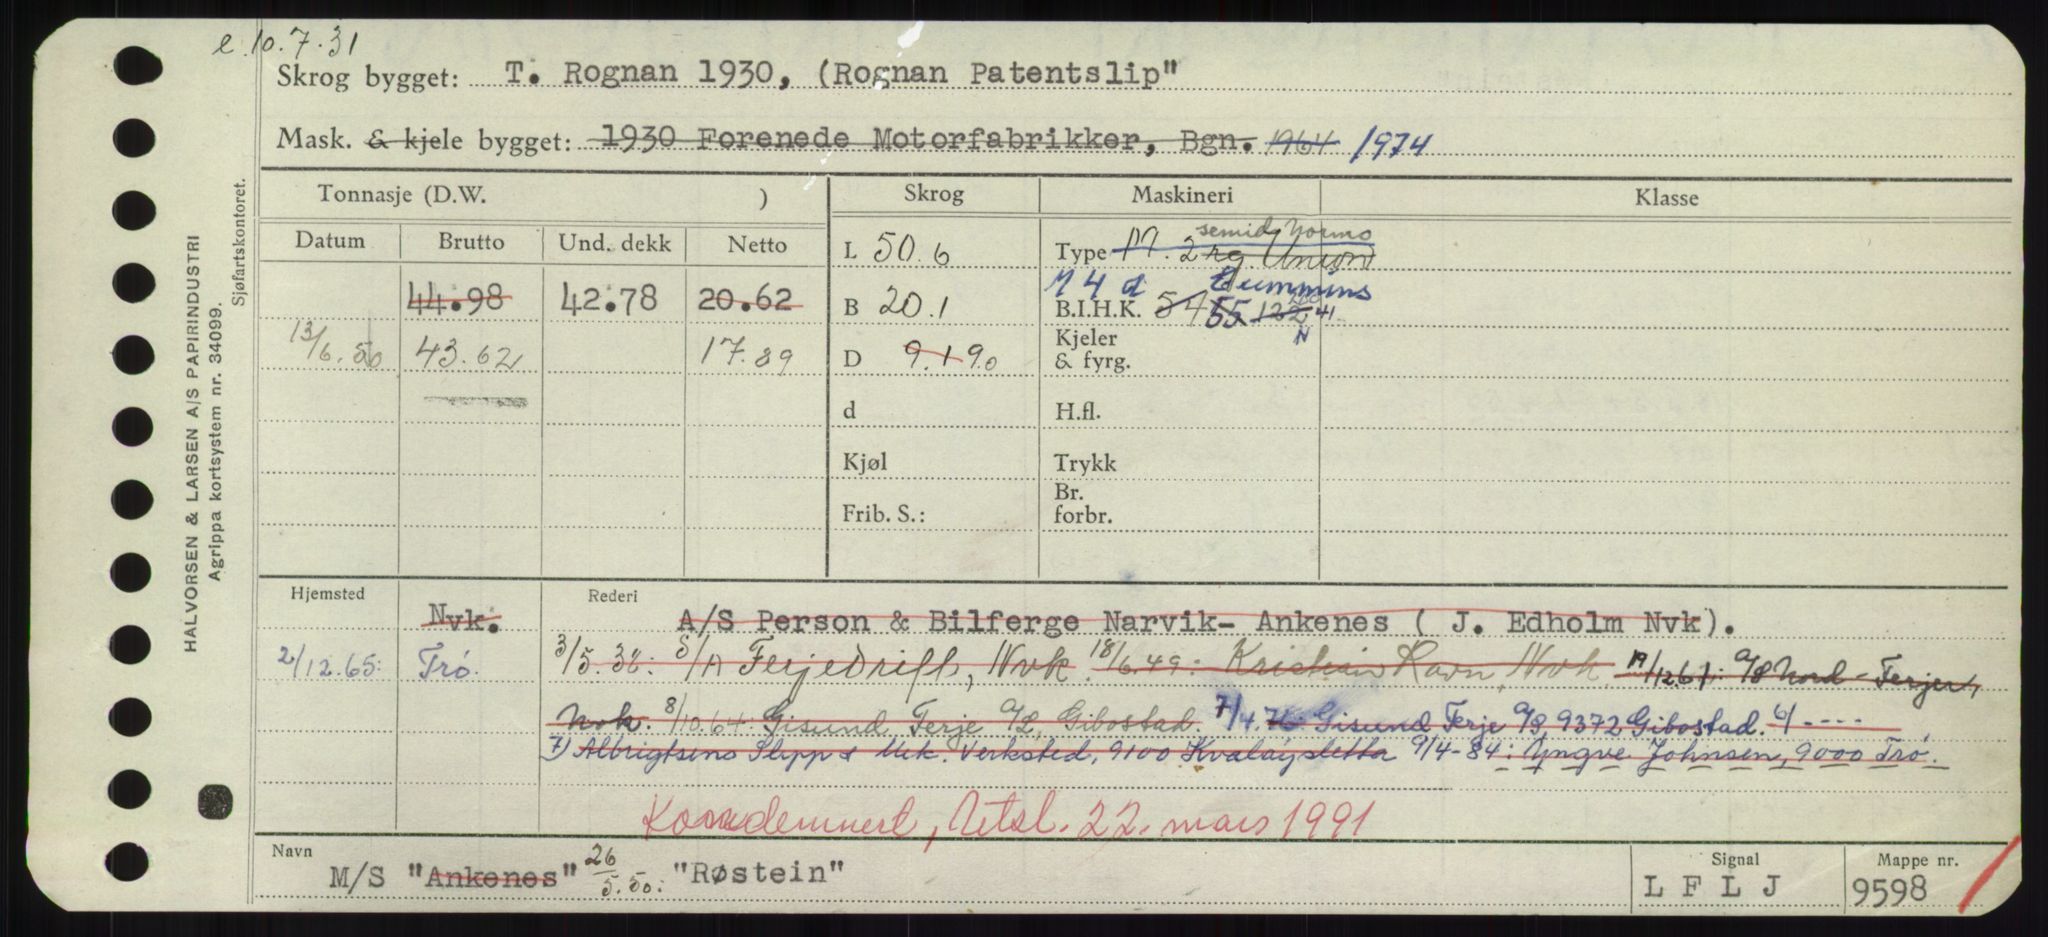 e 10.7.31
Skrog bygget: T. Rognan 1930, (Rognan Patentslip"
Mask. & kjele bygget: 1930 Forenede Motorfabrikker, Bgn. 1964 1974
Tonnasje (D.W. ) Skrog Maskineri Klasse
Datum Brutto Und. dekk Netto
L 50.6 Type M. 2 rg. Union semid Normo
44.98 42.78 20.62
M 4 d Cummins
B 20.1 B.I.H.K. 54 55 122 N
13/6.50 43.62 17.89
D 9.1 9.0 Kjeler & fyrg.
d H.fl.
Kjøl Trykk
Frib. S.: Br. forbr.
Hjemsted Rederi
Nvk. A/S Person & Bilferge Narvik- Ankenes ( J. Edholm Nvk).
2/12.65: Trø. 3/5.38: S/A Ferjedrift, Nvk. 18/6.49: Kristian Ravn, Nvk. 19/12.61: A/S Nord-Ferjer,
Nvk. 8/10.64: Gisund Ferje A/S, Gibostad. 7/4.76: Gisund Ferje A/S, 9372 Gibostad. 6/ ----
7) Albrigtsens Slipp & Mek. Verksted, 9100 Kvaløysletta 9/4-84: Yngve Johnsen, 9000 Trø.
Kondemnert, Utsl. 22. mars 1991
Navn Signal Mappe nr.
M/S "Ankenes" 26/5.50: "Røstein" L F L J 9598
HALVORSEN & LARSEN A/S PAPIRINDUSTRI
Agrippa kortsystem nr. 34099.
Sjøfartskontoret.